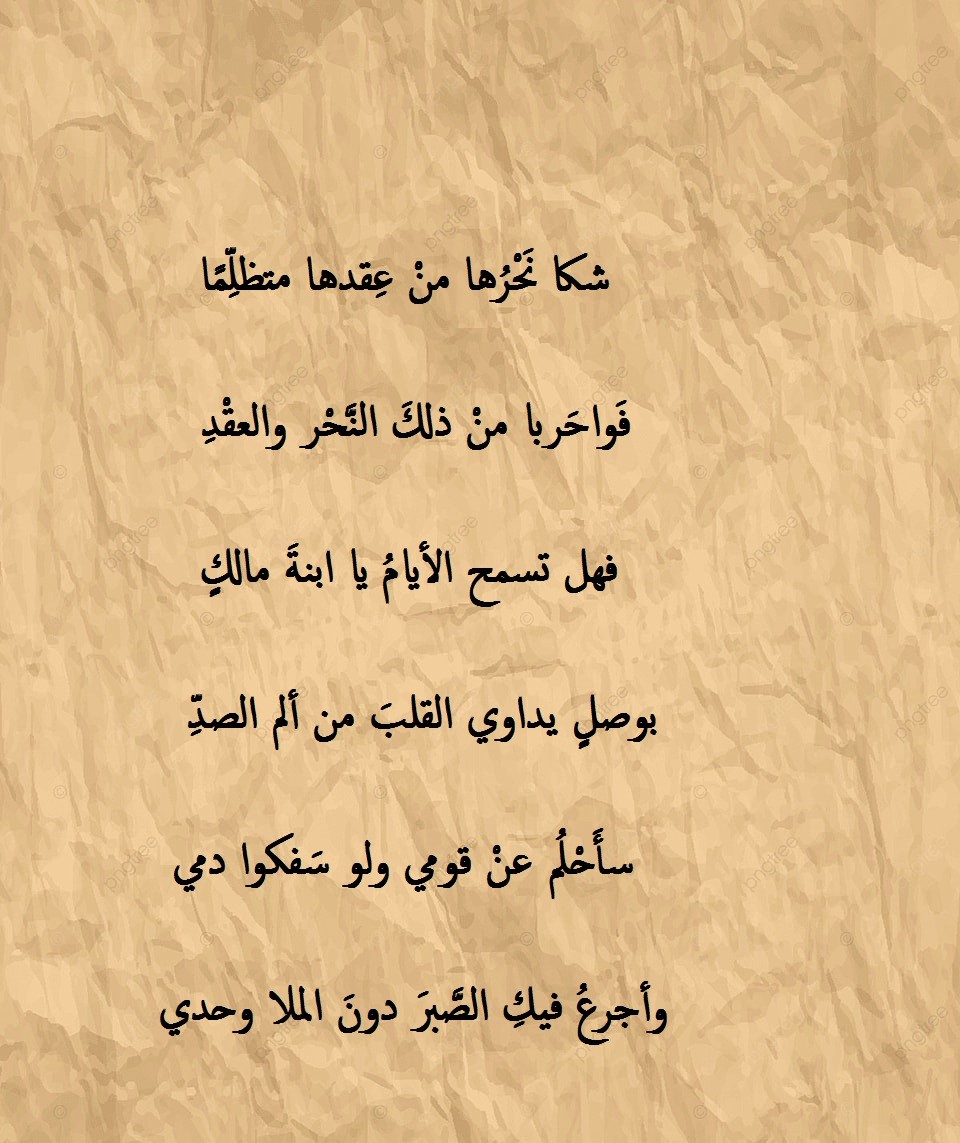 شكا نَحْرُها منْ عِقدها متظلِّمًا
فَواحَربا منْ ذلكَ النَّحْر والعقْدِ
فهل تسمح الأيامُ يا ابنةَ مالكٍ
بوصلٍ يداوي القلبَ من ألم الصدِّ
سأَحْلُم عنْ قومي ولو سَفكوا دمي
وأجرعُ فيكِ الصَّبرَ دونَ الملا وحدي